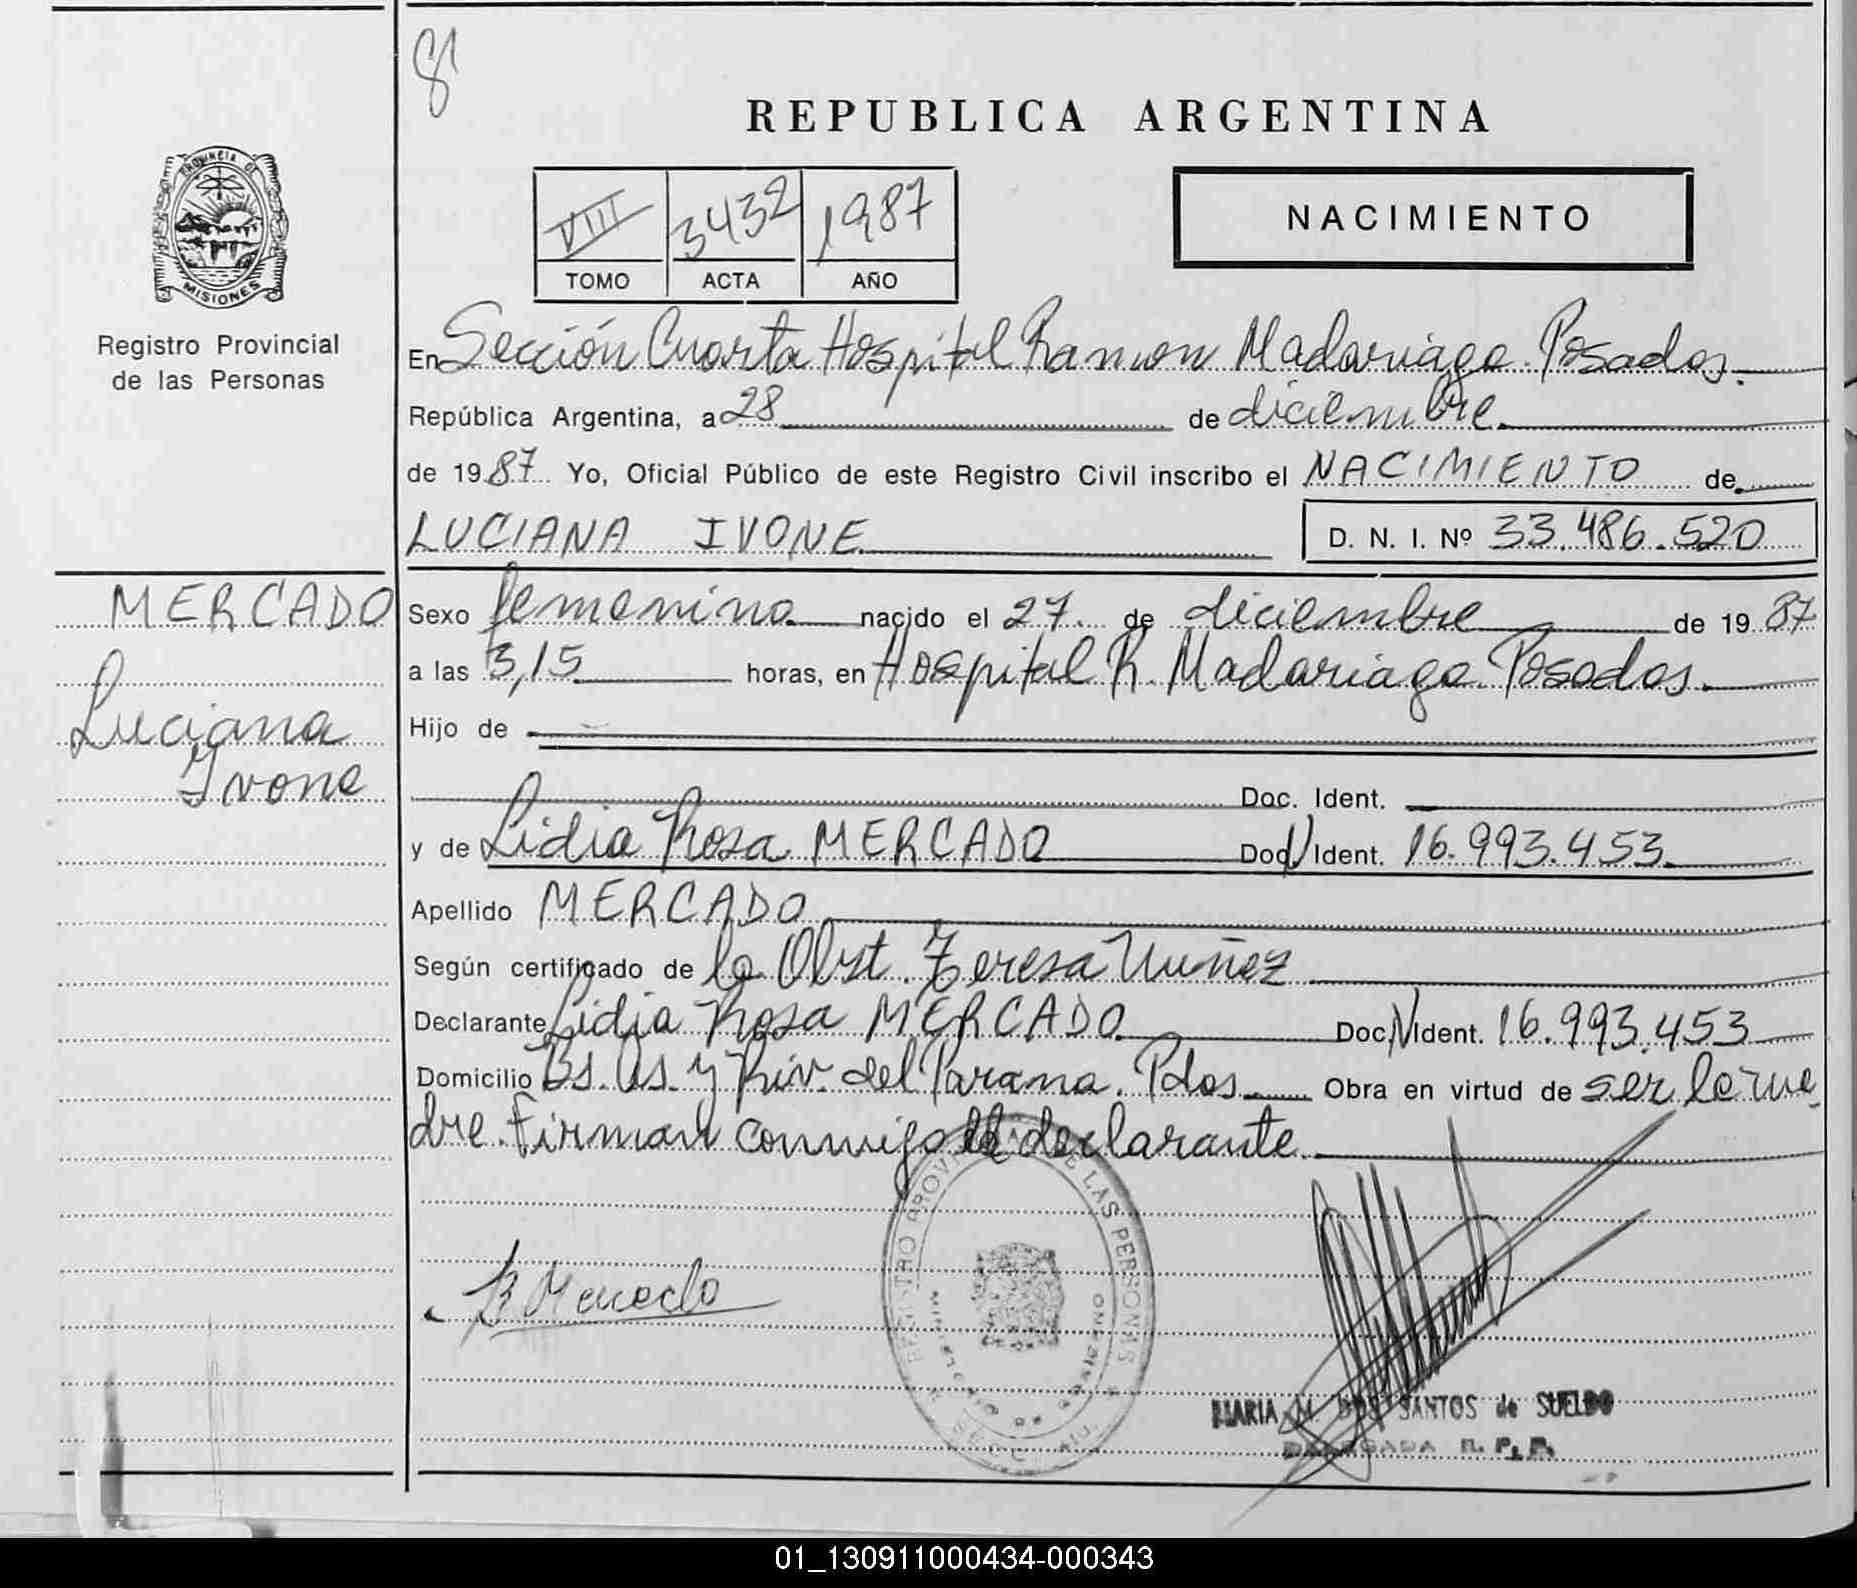 81
REPUBLICA ARGENTINA
PROVINCIA DE
MISIONES
Registro Provincial
de las Personas
VIII 3432 1987
TOMO ACTA AÑO
NACIMIENTO
En Sección Cuarta Hospital Ramon Madariaga. Posadas.
República Argentina, a 28 de diciembre
de 1987 Yo, Oficial Público de este Registro Civil inscribo el NACIMIENTO de
LUCIANA IVONE D. N. I. Nº 33.486.520
MERCADO
Luciana
Ivone
Sexo femenino nacido el 27 de diciembre de 1987
a las 3,15 horas, en Hospital R. Madariaga. Posadas.
Hijo de
Doc. Ident.
y de Lidia Rosa MERCADO Doc. Ident. 16.993.453
Apellido MERCADO
Según certificado de la Obst. Teresa Nuñez
Declarante Lidia Rosa MERCADO Doc. Ident. 16.993.453
Domicilio Bs. As. y Riv. del Parana. Pdas. Obra en virtud de ser la ma
dre. Firman conmigo la declarante
REGISTRO PROVINCIAL DE LAS PERSONAS
MARIA M. DOS SANTOS de SUELDO
DELEGADA R. P. P.
01_130911000434-000343